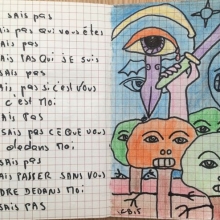 SAIS PAS
AIS PAS QUI VOUS ÊTES
AIS PAS
AIS PAS QUI JE SUIS
SAIS PAS
AIS PAS SI C'EST VOUS
C'EST MOI
AIS PAS
SAIS PAS CE QUE VOUS
dedans MOI
SAIS PAS
AIS PASSER SANS VOUS
DRE DEDANS MOI
SAIS PAS